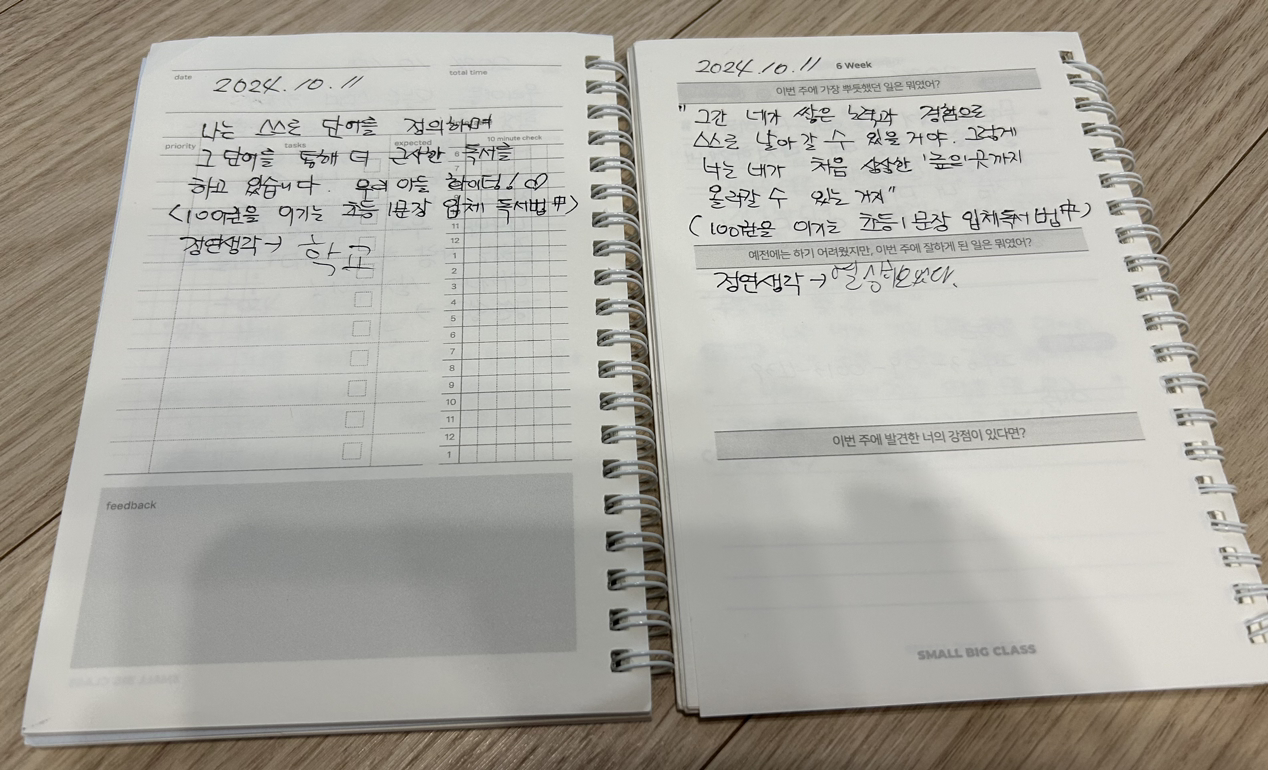 date
total time
2024.10.11
나는 스스로 단어를 정의하며
priority
tasks
expected
10 minute check
그 단어를 통해 더 근사한 독서를
하고 있습니다. 우리 아들 화이팅!
<100권을 이기는 초등 1문장 입체 독서법 中>
정연생각→ 학교
6
7
11
12
1
2
3
4
5
6
7
8
9
10
11
12
1
feedback
2024.10.11
6 Week
이번 주에 가장 뿌듯했던 일은 뭐였어?
"그간 네가 쌓은 노력과 경험으로
스스로 날아갈 수 있을 거야. 그렇게
너는 네가 처음 상상한 '높은' 곳까지
올라갈 수 있는 거지"
(100권을 이기는 초등 1문장 입체독서법 中)
예전에는 하기 어려웠지만, 이번 주에 잘하게 된 일은 뭐였어?
정연생각→
이번 주에 발견한 너의 강점이 있다면?
SMALL BIG CLASS